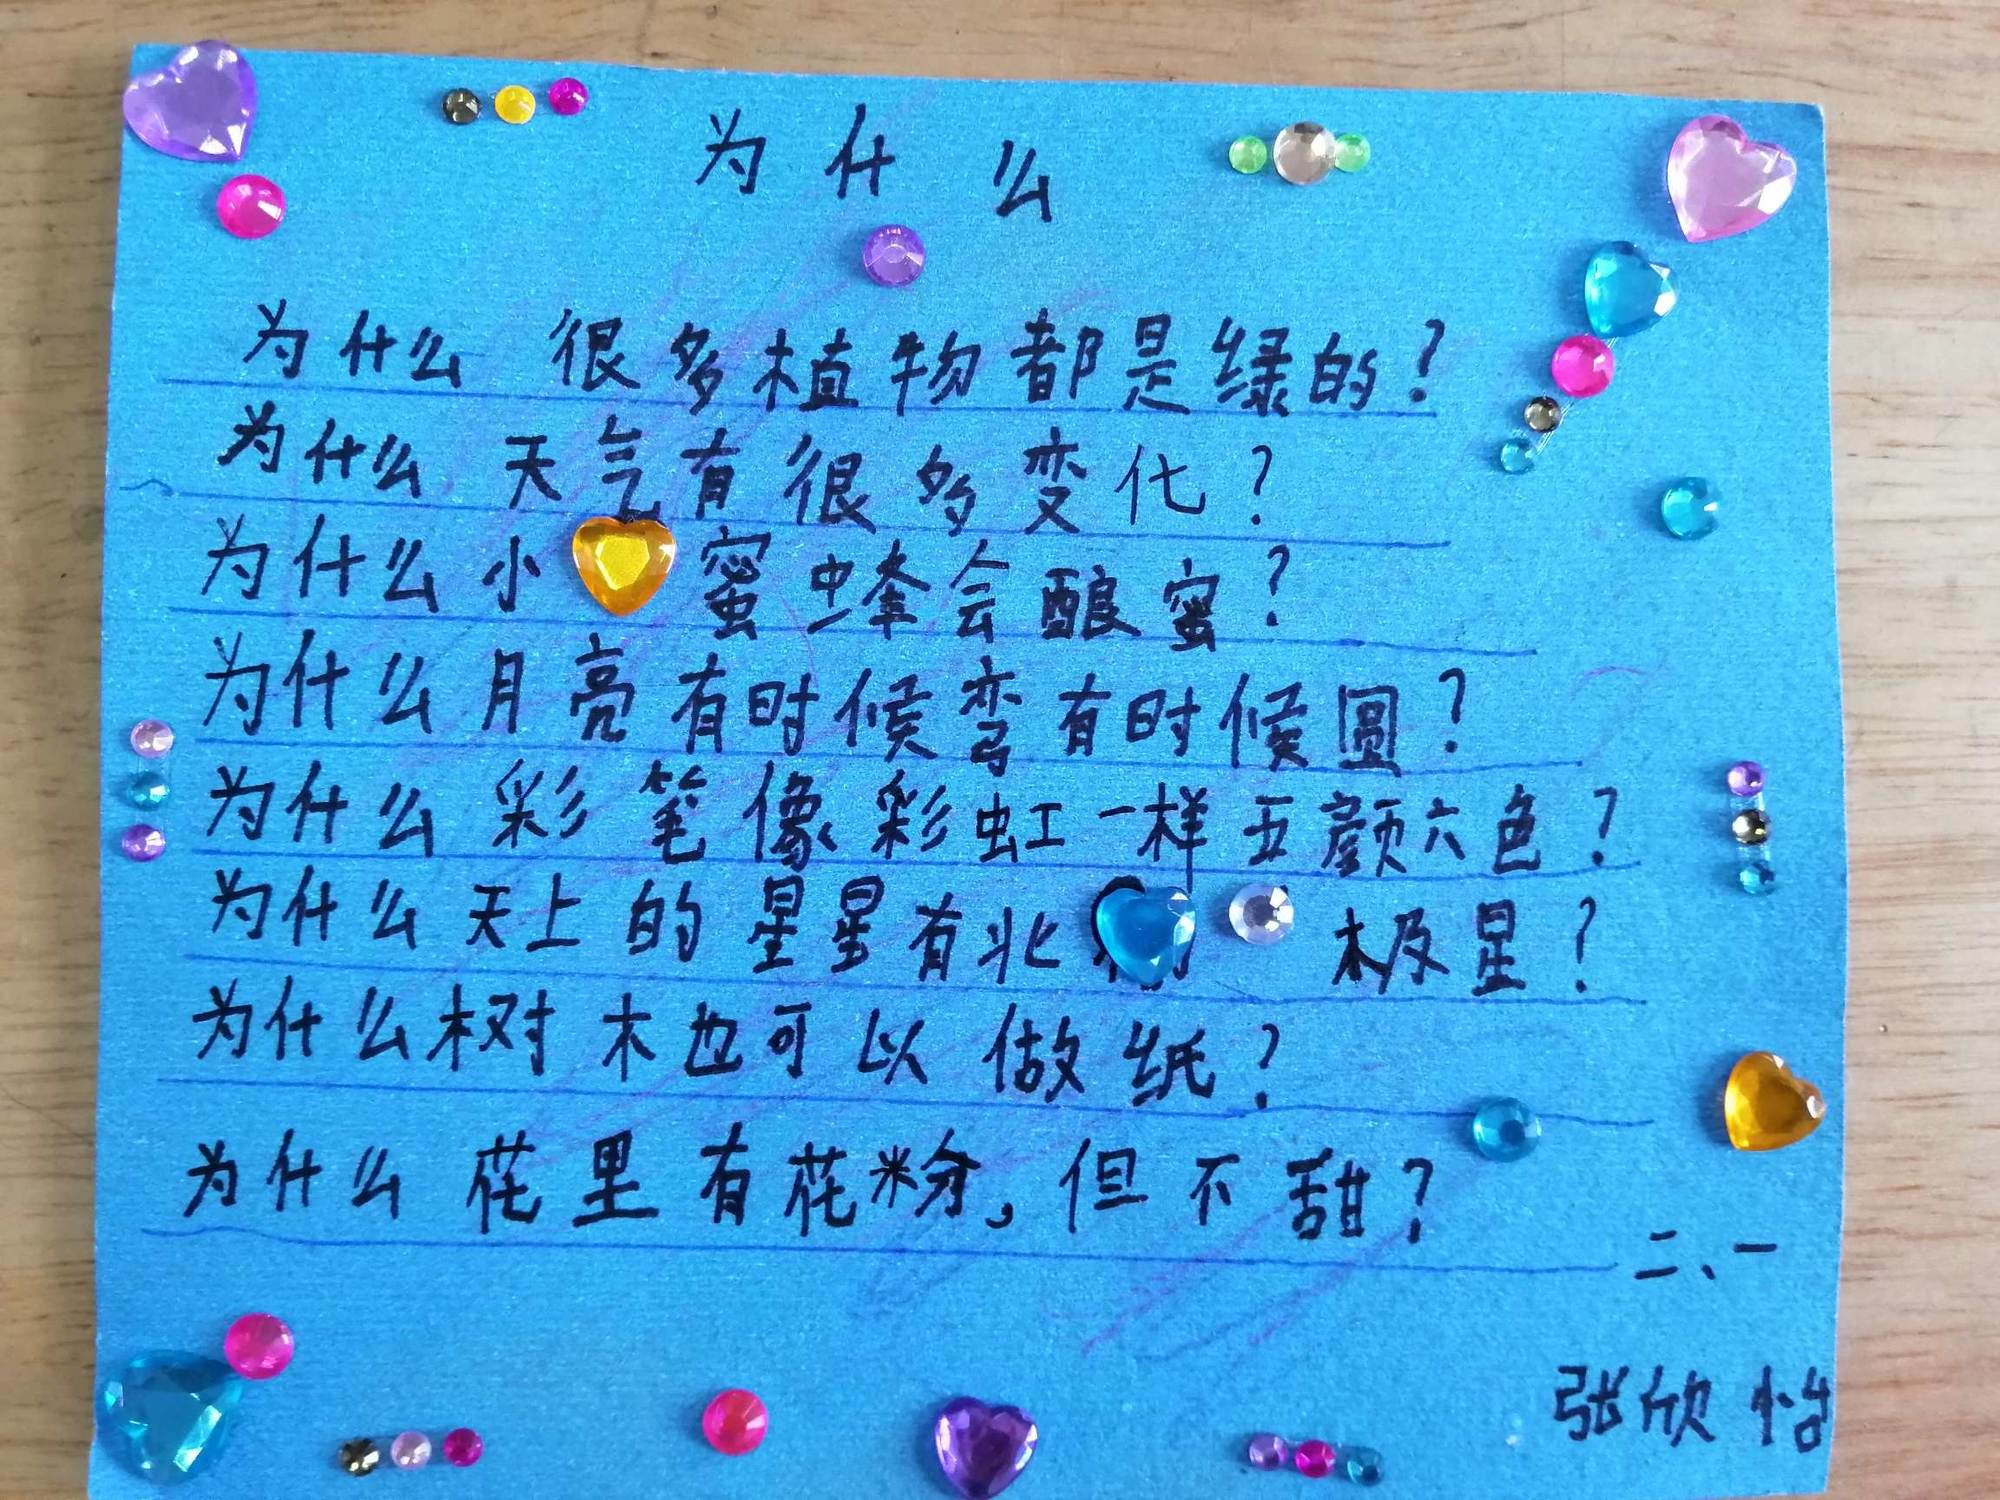 为什么
为什么很多植物都是绿的？
为什么天气有很多变化？
为什么小蜜蜂会酿蜜？
为什么月亮有时候弯有时候圆？
为什么彩笔像彩虹一样五颜六色？
为什么天上的星星有北极星？
为什么树木也可以做纸？
为什么花里有花粉，但不甜？
二、一
张欣怡